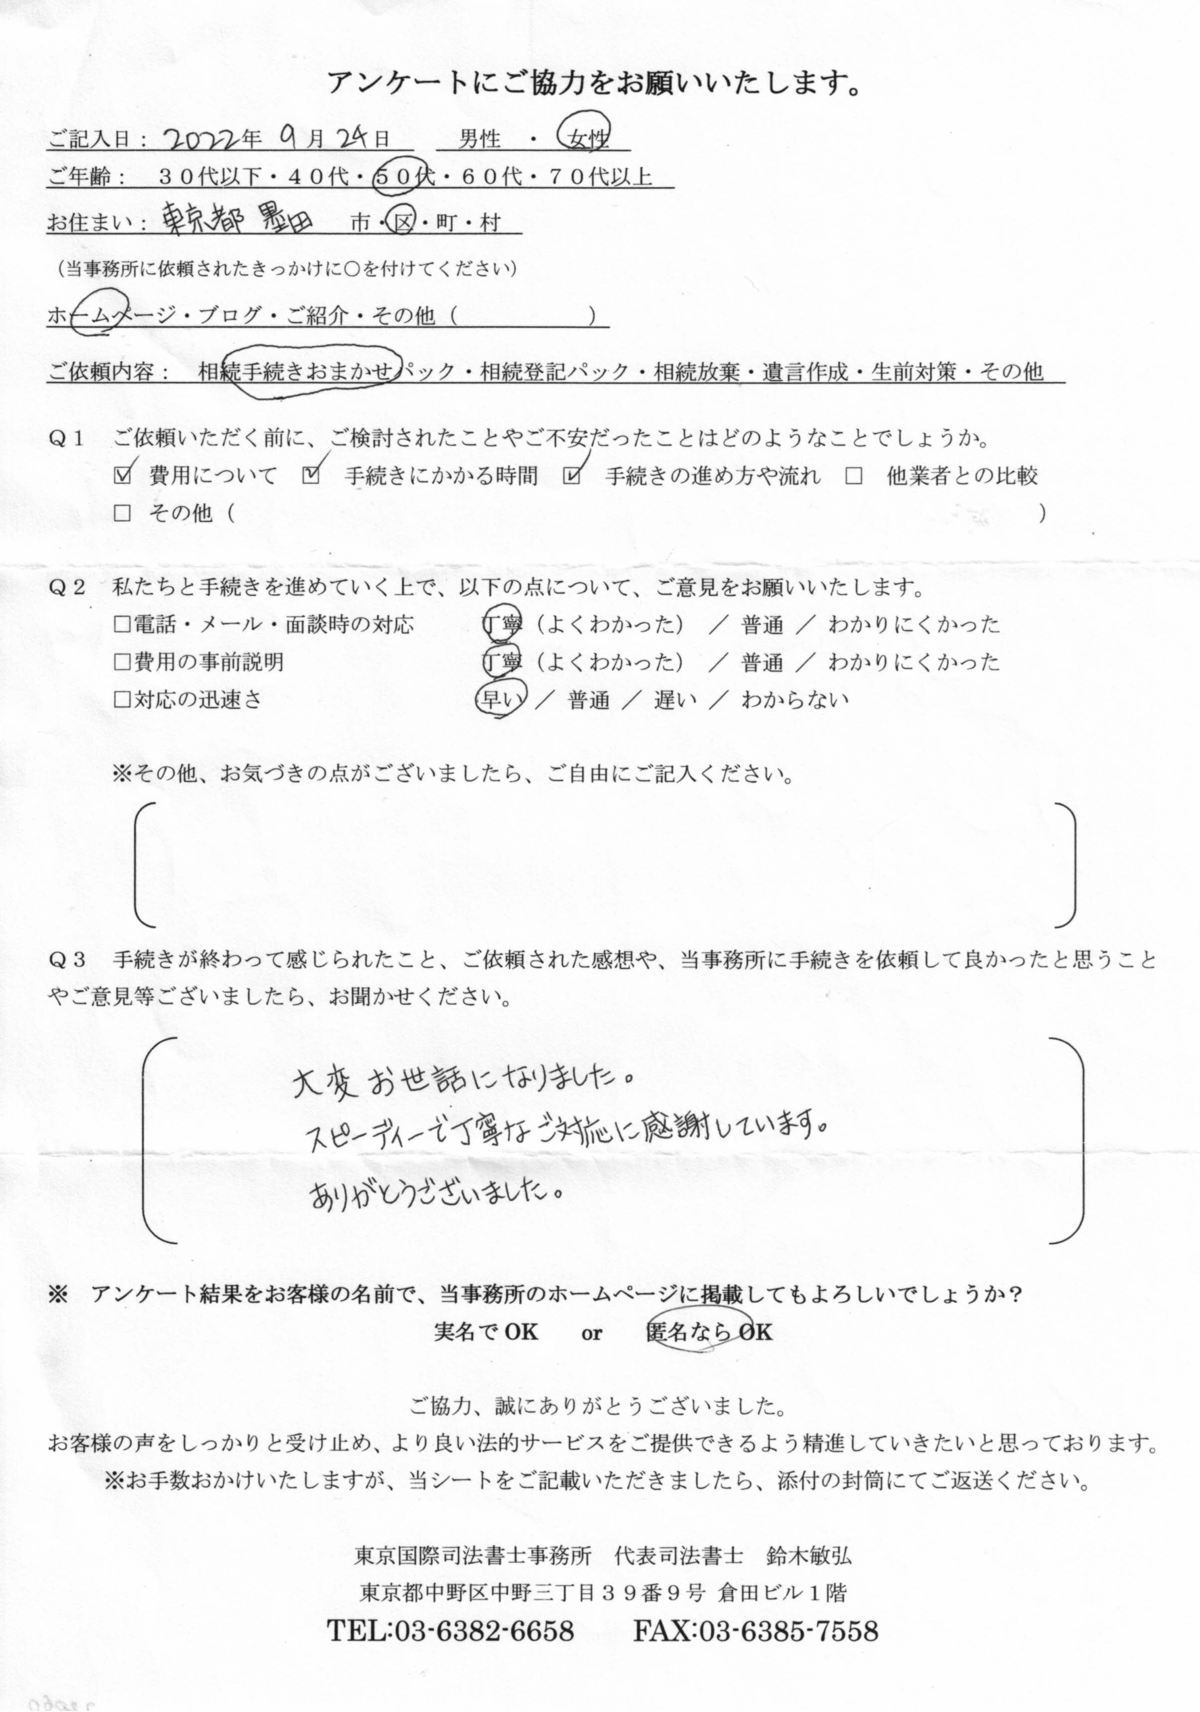 アンケートにご協力をお願いいたします。
ご記入日： 2022年 9月 24日　男性　・　女性
ご年齢：　３０代以下・４０代・５０代・６０代・７０代以上
お住まい： 東京都 墨田　市・区・町・村
（当事務所に依頼されたきっかけに〇を付けてください）
ホームページ・ブログ・ご紹介・その他（　　　　　　）
ご依頼内容：　相続手続きおまかせパック・相続登記パック・相続放棄・遺言作成・生前対策・その他
Ｑ１　ご依頼いただく前に、ご検討されたことやご不安だったことはどのようなことでしょうか。
☑ 費用について ☑ 手続きにかかる時間 ☑ 手続きの進め方や流れ □ 他業者との比較
□ その他（　　　　　　　　　　）
Ｑ２　私たちと手続きを進めていく上で、以下の点について、ご意見をお願いいたします。
□電話・メール・面談時の対応　　丁寧（よくわかった） ／ 普通 ／ わかりにくかった
□費用の事前説明　　丁寧（よくわかった） ／ 普通 ／ わかりにくかった
□対応の迅速さ　　早い ／ 普通 ／ 遅い ／ わからない
※その他、お気づきの点がございましたら、ご自由にご記入ください。
Ｑ３　手続きが終わって感じられたこと、ご依頼された感想や、当事務所に手続きを依頼して良かったと思うこと
やご意見等ございましたら、お聞かせください。
大変お世話になりました。
スピーディーで丁寧なご対応に感謝しています。
ありがとうございました。
※　アンケート結果をお客様の名前で、当事務所のホームページに掲載してもよろしいでしょうか？
実名で OK　or　匿名なら OK
ご協力、誠にありがとうございました。
お客様の声をしっかりと受け止め、より良い法的サービスをご提供できるよう精進していきたいと思っております。
※お手数おかけいたしますが、当シートをご記載いただきましたら、添付の封筒にてご返送ください。
東京国際司法書士事務所　代表司法書士　鈴木敏弘
東京都中野区中野三丁目３９番９号 倉田ビル１階
TEL:03-6382-6658　FAX:03-6385-7558